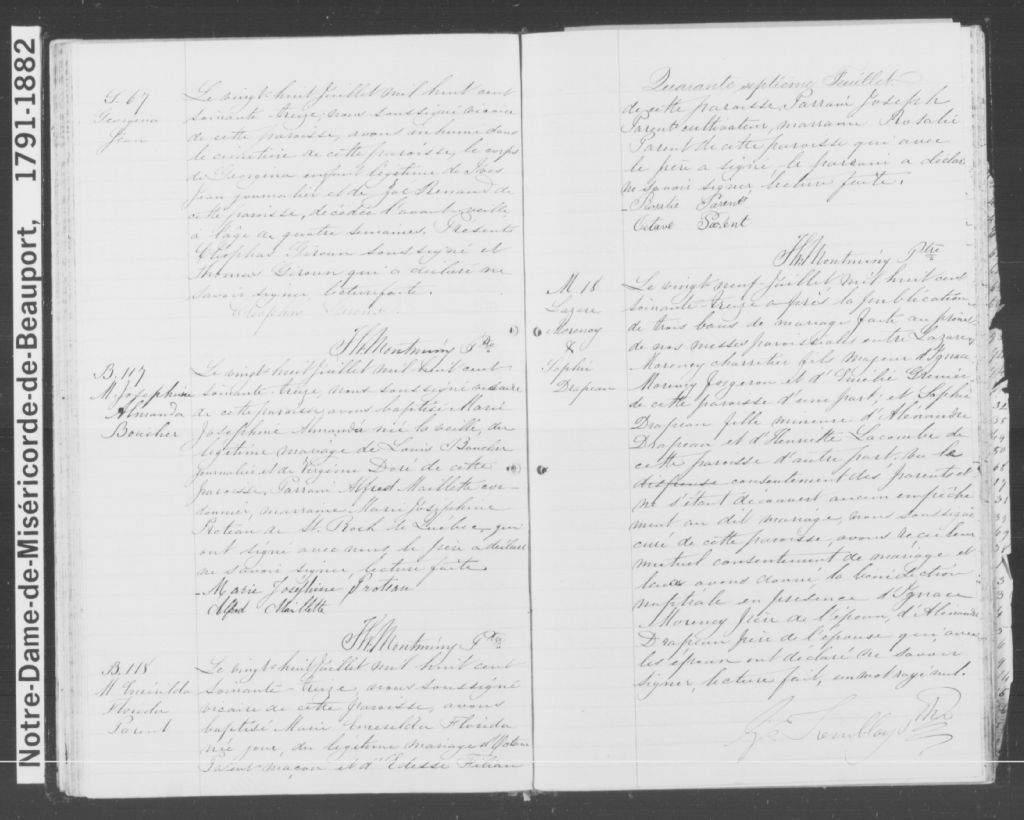 Notre-Dame-de-Miséricorde-de-Beauport, 1791-1882
S. 67
Georgina
Jean
Le vingt-huit Juillet mil huit cent
soixante-treize, nous soussigné vicaire
de cette paroisse, avons inhumé dans
le cimetière de cette paroisse, le corps
de Georgina enfant légitime de
Jean journalier et de Renaud de
cette paroisse, décédée l'avant-veille
à l'âge de quatre semaines. Présents
Cléophas Giroux soussigné et
Thomas Giroux qui a déclaré ne
savoir signer, lecture faite.
Cléophas Giroux
Montminy Ptre
B. 117
M. Joséphine
Almanda
Boucher
Le vingt-huit Juillet mil huit cent
soixante-treize, nous soussigné vicaire
de cette paroisse avons baptisé Marie
Joséphine Almanda née la veille, du
légitime mariage de Louis Boucher
journalier et de Virginie Doré de cette
paroisse. Parrain Alfred Maillette cor-
donnier, marraine Marie Joséphine
Proteau de St. Roch de Québec, qui
ont signé avec nous, le père a déclaré
ne savoir signer, lecture faite.
Marie Joséphine Proteau
Alfred Maillette
Montminy Ptre
B. 118
M.
Florida
Parent
Le vingt-huit Juillet mil huit cent
soixante-treize, nous soussigné
vicaire de cette paroisse, avons
baptisé Marie Florida
née jour, du légitime mariage d'Octave
Parent maçon et d'
Quarante septième Feuillet
de cette paroisse, Parrain Joseph
Parent cultivateur, marraine Rosalie
Parent de cette paroisse qui avec
le père a signé le parrain a déclaré
ne savoir signer, lecture faite.
Rosalie Parent
Octave Parent
Montminy Ptre
M 18
Lazare
Morency
&
Sophie
Drapeau
Le vingt neuf Juillet, mil huit cent
soixante-treize après la publication
de trois bans de mariage faite au prône
de nos messes paroissiales entre Lazare
Morency charretier fils majeur d'Ignace
Morency forgeron et d'Emélie
de cette paroisse d'une part; et Sophie
Drapeau fille mineure d'Alexandre
Drapeau et d'Henriette Lacombe de
cette paroisse d'autre part, vu le
dispense consentement des parents et
ne s'étant découvert aucun empêche
ment au dit mariage, nous soussigné
curé de cette paroisse, avons reçu leur
mutuel consentement de mariage et
leur avons donné la bénédiction
nuptiale en présence d'Ignace
Morency père de l'époux, d'Alexandre
Drapeau père de l'épouse qui avec
les époux ont déclaré ne savoir
signer, lecture fait, un mot rayé nul.
Tremblay Ptre